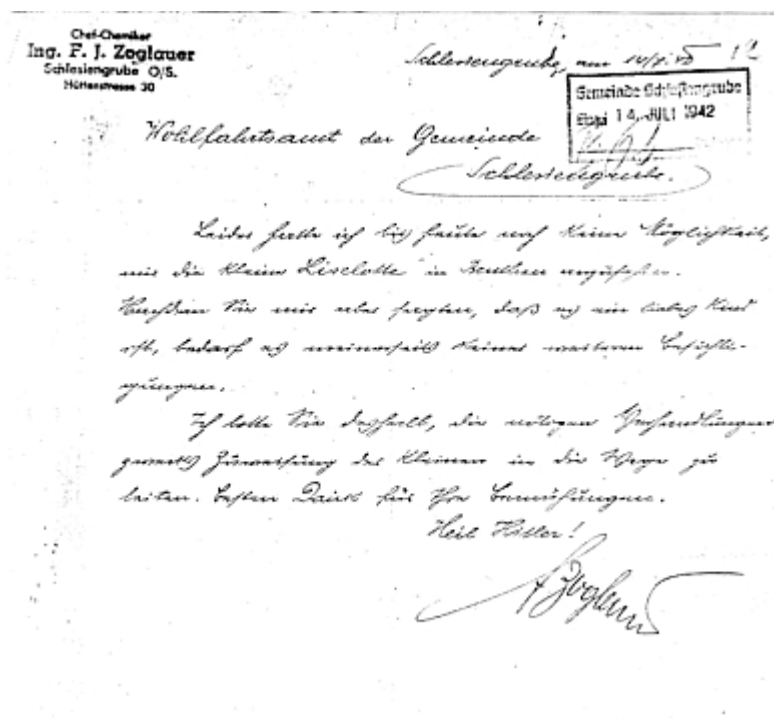 Chef-Chemiker
Ing. F. J. Zoglauer
Schlesiengrube O/S.
Hüttenstrasse 30
Schlesiengrube, am
Gemeinde Schlesiengrube
14. JULI 1942
Wohlfahrtsamt der Gemeinde
Schlesiengrube.
Leider hatte ich bis heute noch keine Möglichkeit,
mir die kleine "Liselotte" in Beuthen anzusehen.
Nachdem Sie mir aber sagten, daß es ein liebes Kind
ist, bedarf es meinerseits keiner weiteren Besichti-
gungen.
Ich bitte Sie deshalb, die nötigen Verhandlungen
zwecks Zuweisung der Kleinen in die Wege zu
leiten. Besten Dank für Ihre Bemühungen.
Heil Hitler!
Zoglauer